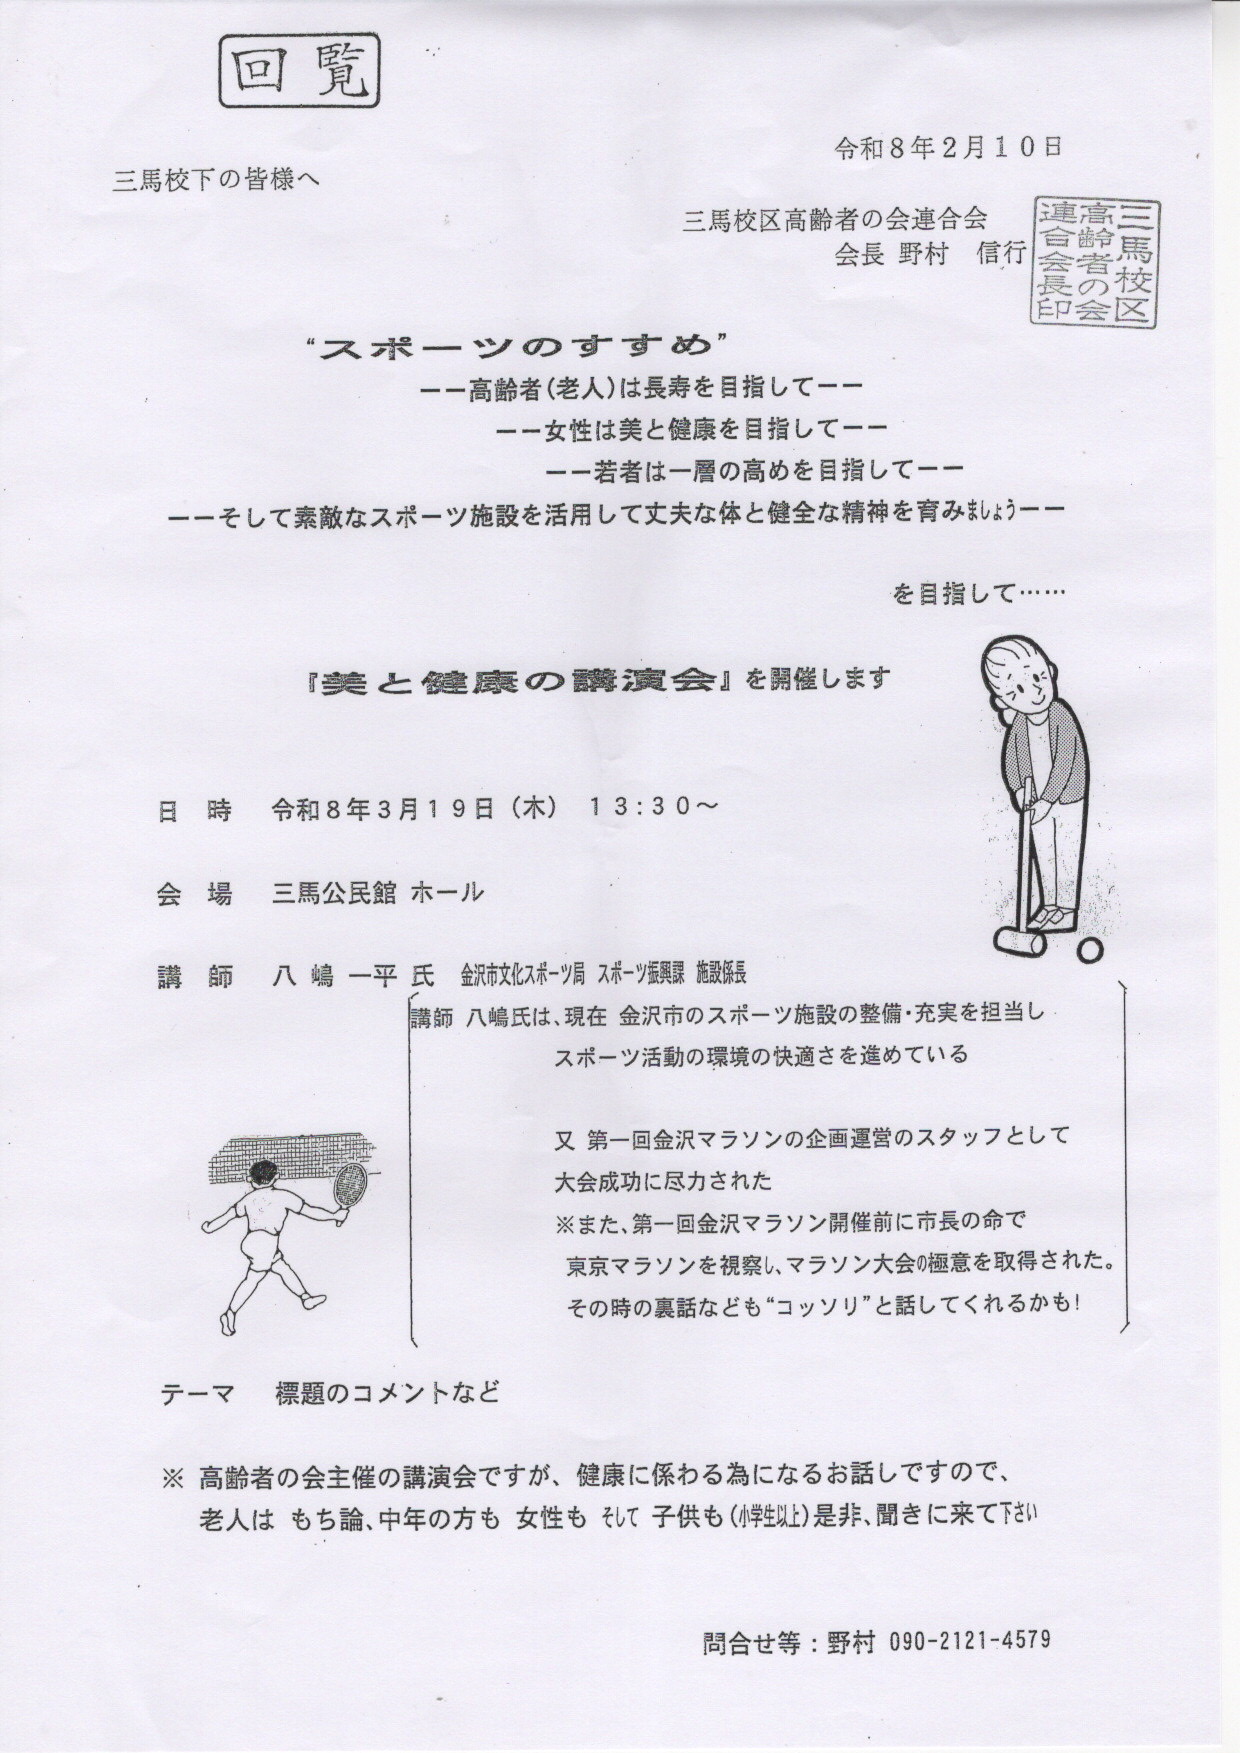 回覧
令和８年２月１０日
三馬校下の皆様へ
三馬校区高齢者の会連合会
会長 野村　信行
三馬校区
高齢者の会
連合会長印
“スポーツのすすめ”
ーー高齢者(老人)は長寿を目指してーー
ーー女性は美と健康を目指してーー
ーー若者は一層の高めを目指してーー
ーーそして素敵なスポーツ施設を活用して丈夫な体と健全な精神を育みましょうーー
を目指して……
『美と健康の講演会』を開催します
日　時　令和８年３月１９日（木）　１３:３０～
会　場　三馬公民館 ホール
講　師　八 嶋 一平 氏　金沢市文化スポーツ局 スポーツ振興課 施設係長
講師 八嶋氏は、現在 金沢市のスポーツ施設の整備・充実を担当し
スポーツ活動の環境の快適さを進めている
又 第一回金沢マラソンの企画運営のスタッフとして
大会成功に尽力された
※また、第一回金沢マラソン開催前に市長の命で
東京マラソンを視察し、マラソン大会の極意を取得された。
その時の裏話なども“コッソリ”と話してくれるかも!
テーマ　標題のコメントなど
※ 高齢者の会主催の講演会ですが、健康に係わる為になるお話しですので、
老人は もち論、中年の方も 女性も そして 子供も(小学生以上)是非、聞きに来て下さい
問合せ等：野村 090-2121-4579